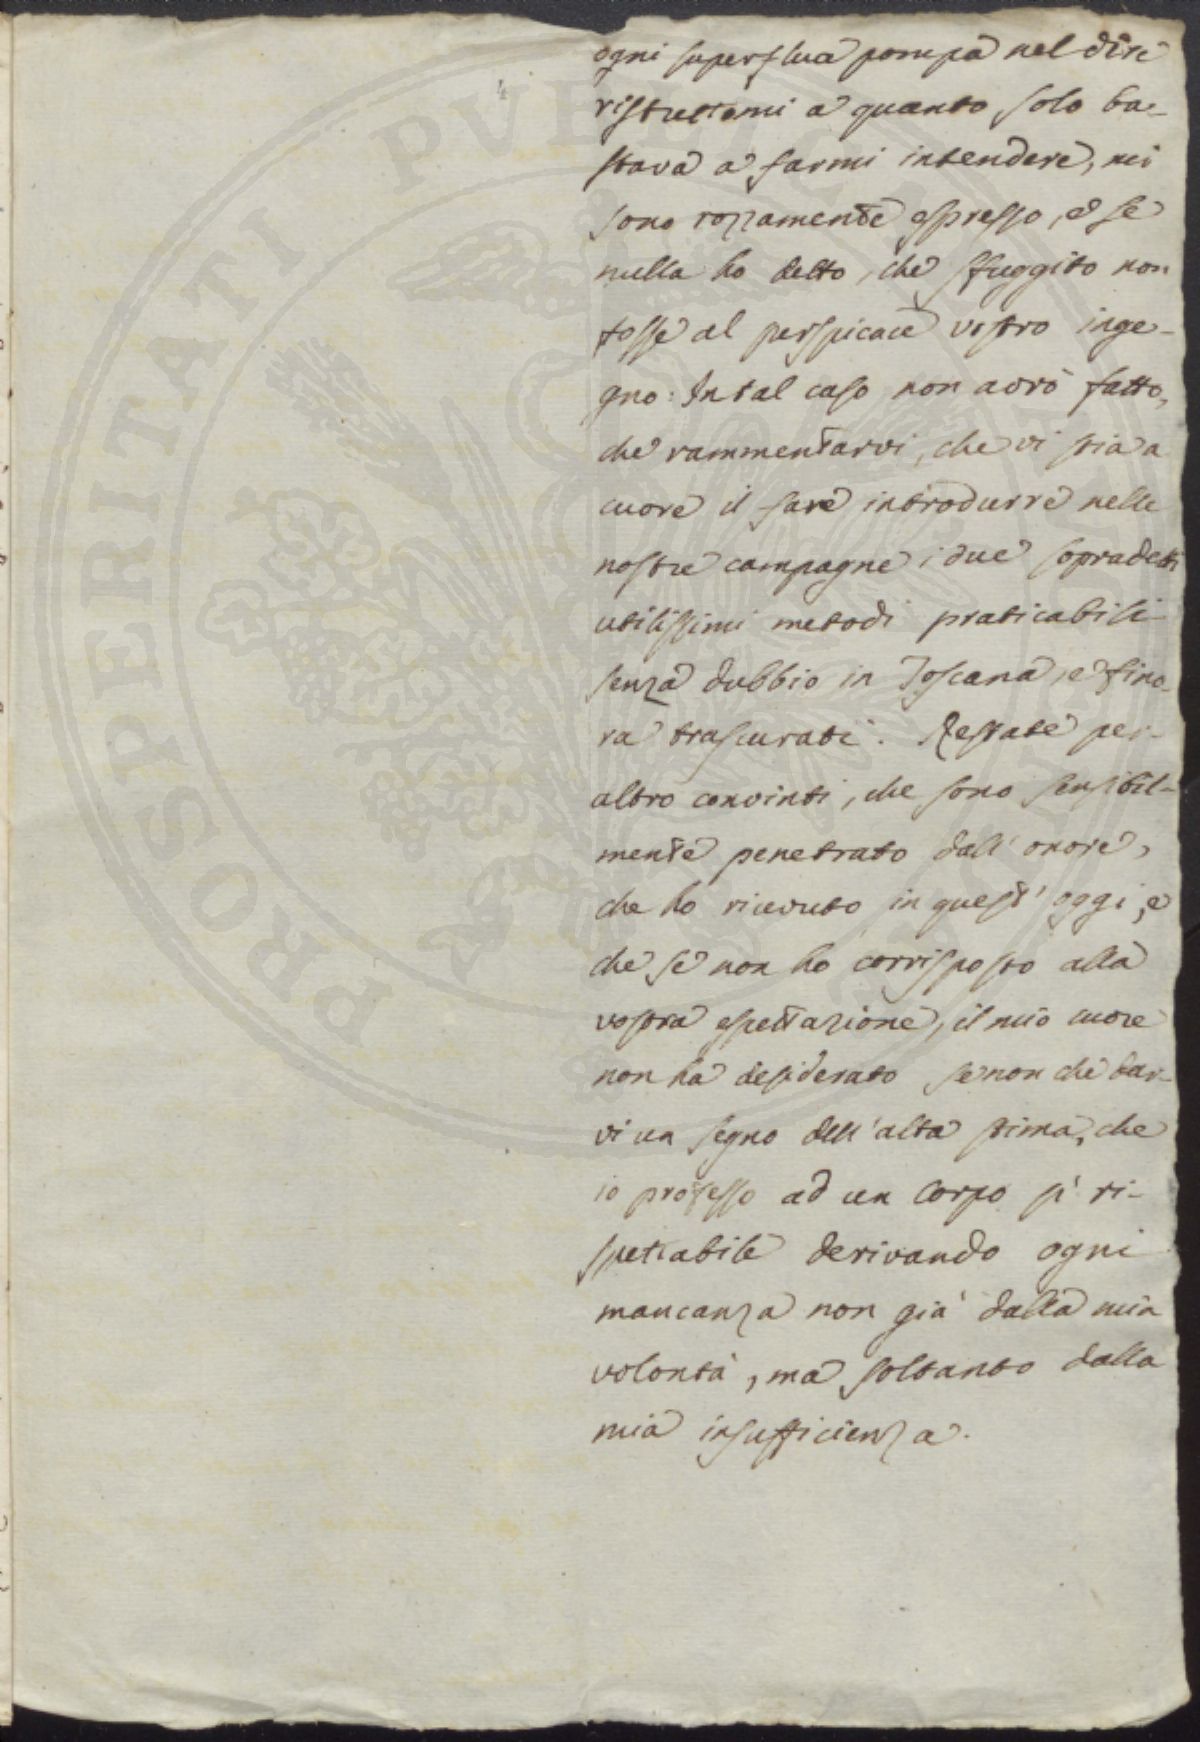 ogni superflua pompa nel dire
ristrettomi a quanto solo ba-
stava a farmi intendere, mi
sono rozzamente espresso, e se
nulla ho detto, che sfuggito non
fosse al perspicace vostro inge-
gno: In tal caso non avrò fatto,
che rammentarvi, che vi stia a
cuore il fare introdurre nelle
nostre campagne i due sopradetti
utilissimi metodi praticabili
senza dubbio in Toscana, e fino-
ra trascurati. Restate per-
altro convinti, che sono sensibil-
mente penetrato dall'onore,
che ho ricevuto in quest'oggi, e
che se non ho corrisposto alla
vostra espettazione, il mio cuore
non ha desiderato se non che dar-
vi un segno dell'alta stima, che
io professo ad un Corpo sì ri-
spettabile derivando ogni
mancanza non già dalla mia
volontà, ma soltanto dalla
mia insufficienza.
PROSPERITATI